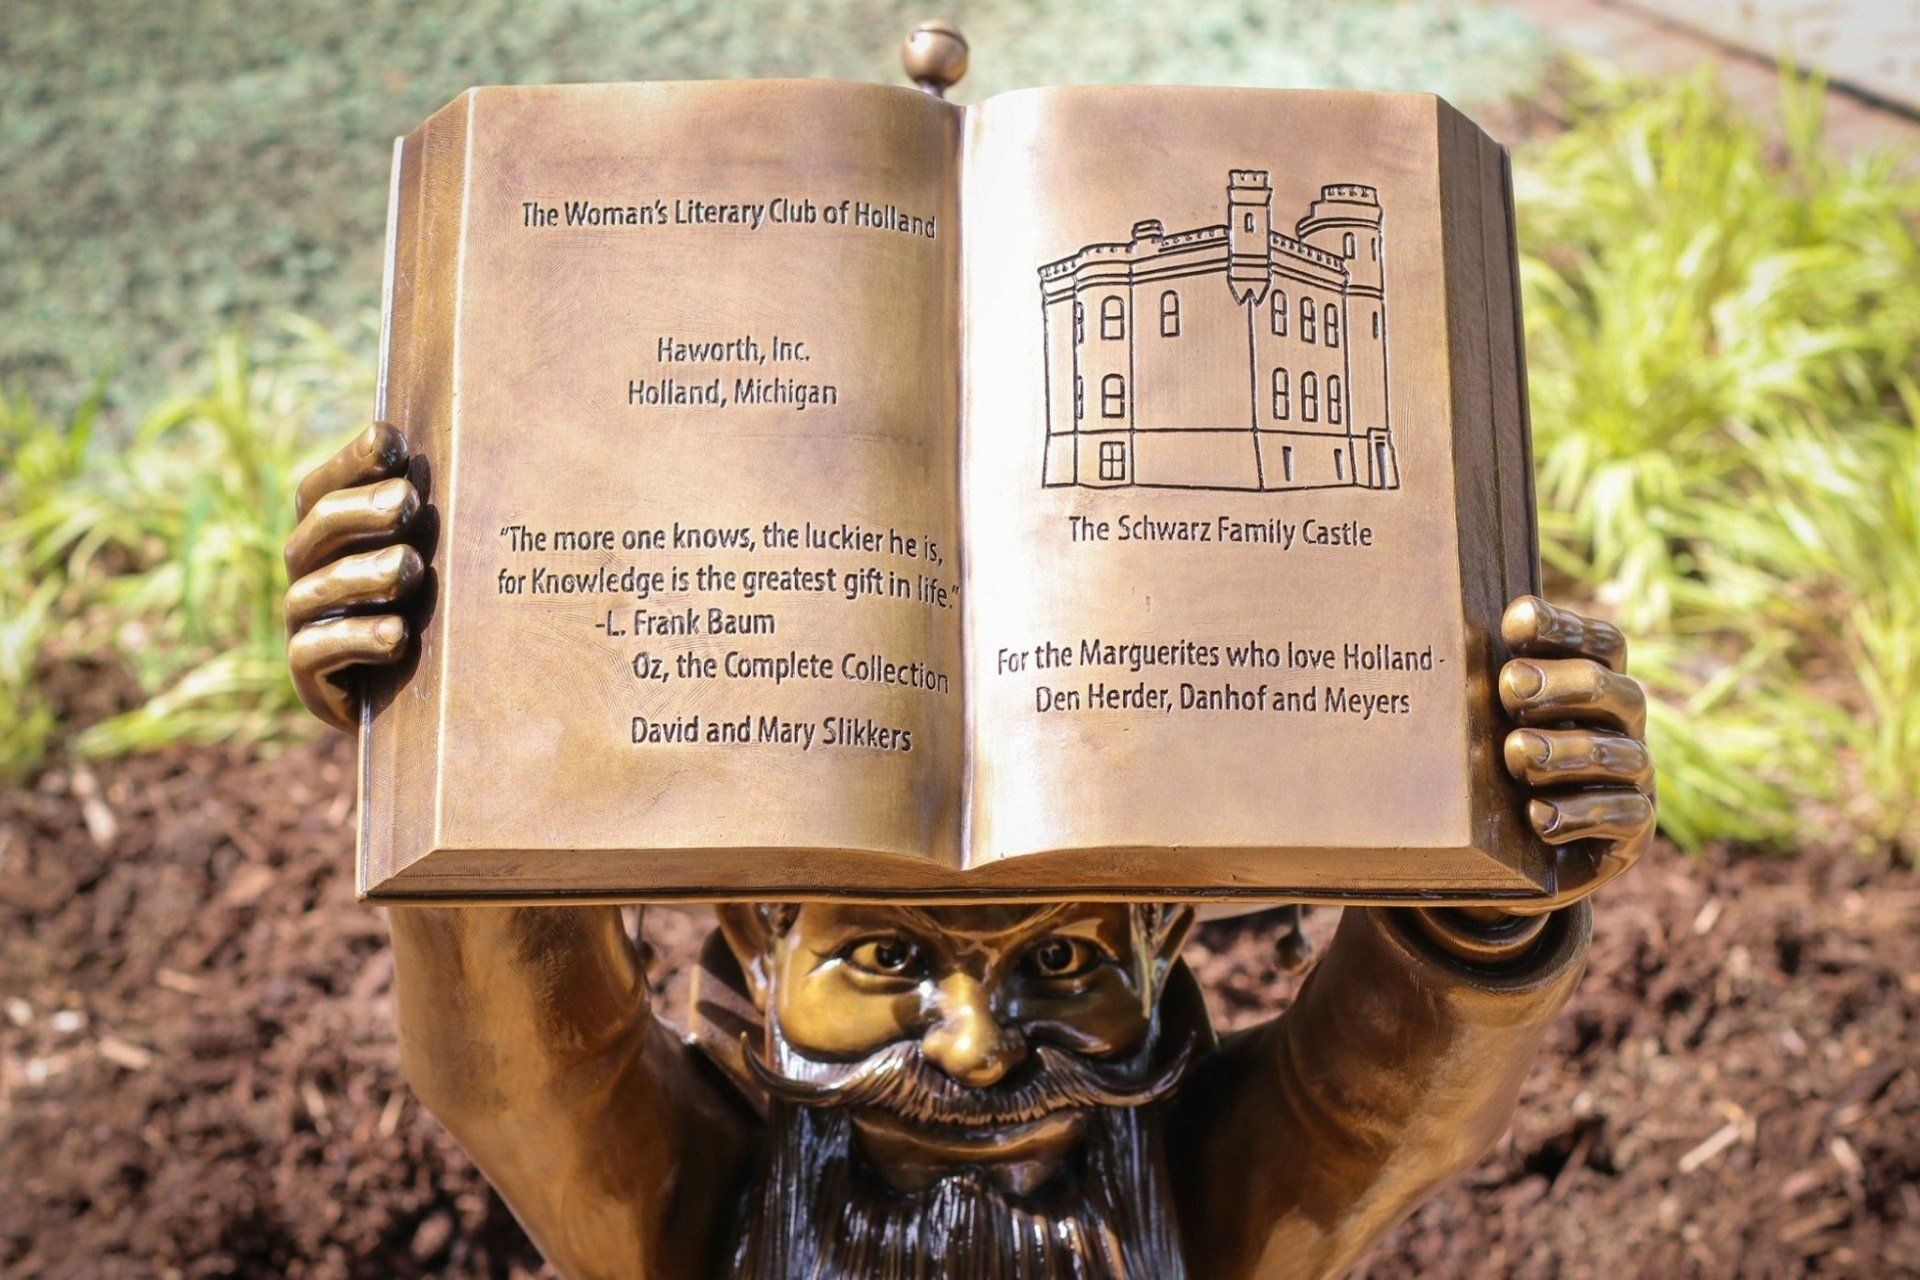 The Woman's Literary Club of Holland
Haworth, Inc.
Holland, Michigan
"The more one knows, the luckier he is,
for Knowledge is the greatest gift in life."
-L. Frank Baum
Oz, the Complete Collection
David and Mary Slikkers
The Schwarz Family Castle
For the Marguerites who love Holland -
Den Herder, Danhof and Meyers